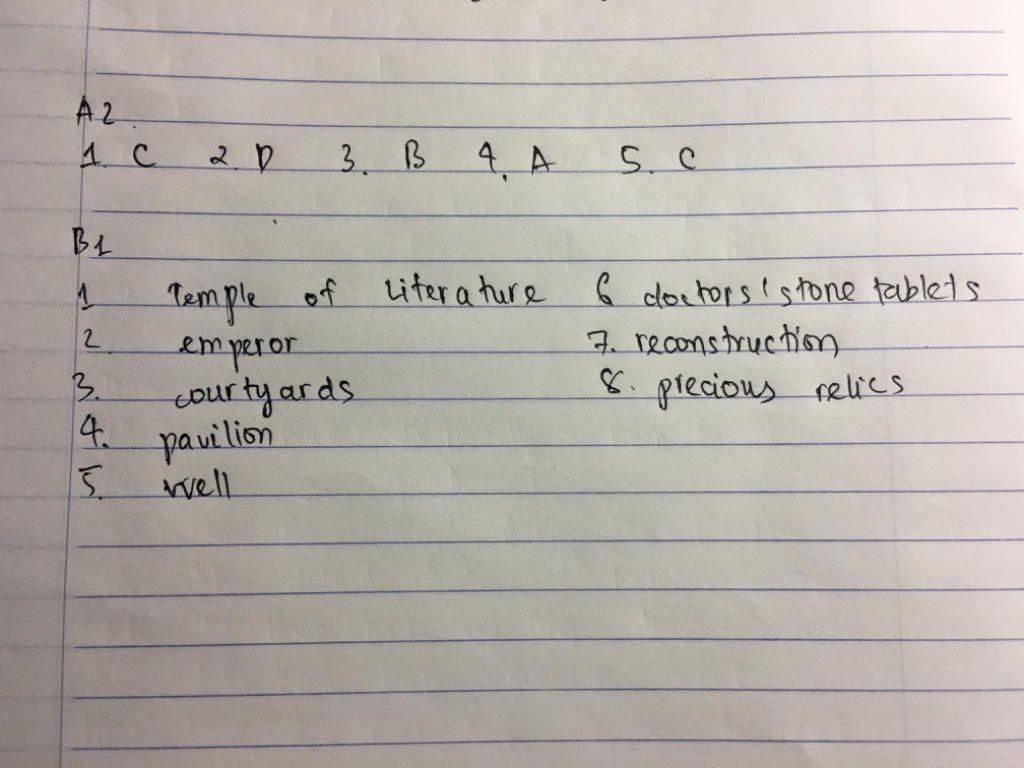 A2.
1. C 2. D 3. B 4. A 5. C
B1
1 Temple of Literature 6 doctors' stone tablets
2. emperor 7. reconstruction
3. courtyards 8. precious relics
4. pavilion
5. well